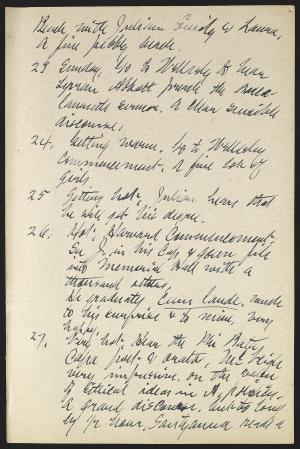 Beach with Julian Emily & Laura,
a fine pebbly beach.
23 Sunday, Go to Wellesly to hear
Lyman Abbott preach the Bacca-
laureate sermon. A clear sensible
discourse.
24, Getting warm. Go to Wellesley
Commencement. A fine lot of
girls.
25 Getting hot, Julian hears that
he will get his degree.
26. Hot; Harvard Commencement
See J. in his cap & gown file
into Memorial Hall with a
thousand others,
He graduates Cum laude, much
to his surprise & to mine, very
happy.
27. Very hot. Hear the Phi Beta
Capa poet & orator, McVeigh
very impressive, on the
of Ethical ideas in
a grand discourse, but too long
by 1/2 hour, Santyanna reads a